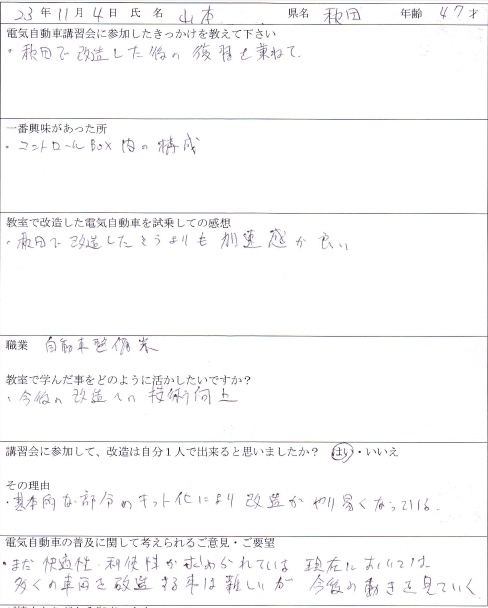 23 年 11 月 4 日 氏 名 山本 県名 秋田 年齢 47才
電気自動車講習会に参加したきっかけを教えて下さい
・秋田で改造した後の復習を兼ねて.
一番興味があった所
・コントロールBOX内の構成
教室で改造した電気自動車を試乗しての感想
・秋田で改造したそうよりも加速感が良い
職業 自動車整備業
教室で学んだ事をどのように活かしたいですか?
・今後の改造への技術向上
講習会に参加して、改造は自分1人で出来ると思いましたか? はい・いいえ
その理由
・基本的な部分のキット化により改造がやり易くなっている.
電気自動車の普及に関して考えられるご意見・ご要望
・まだ快適性.利便性が求められている現在においては、
多くの車両を改造する事は難しいが 今後の動きを見ていく